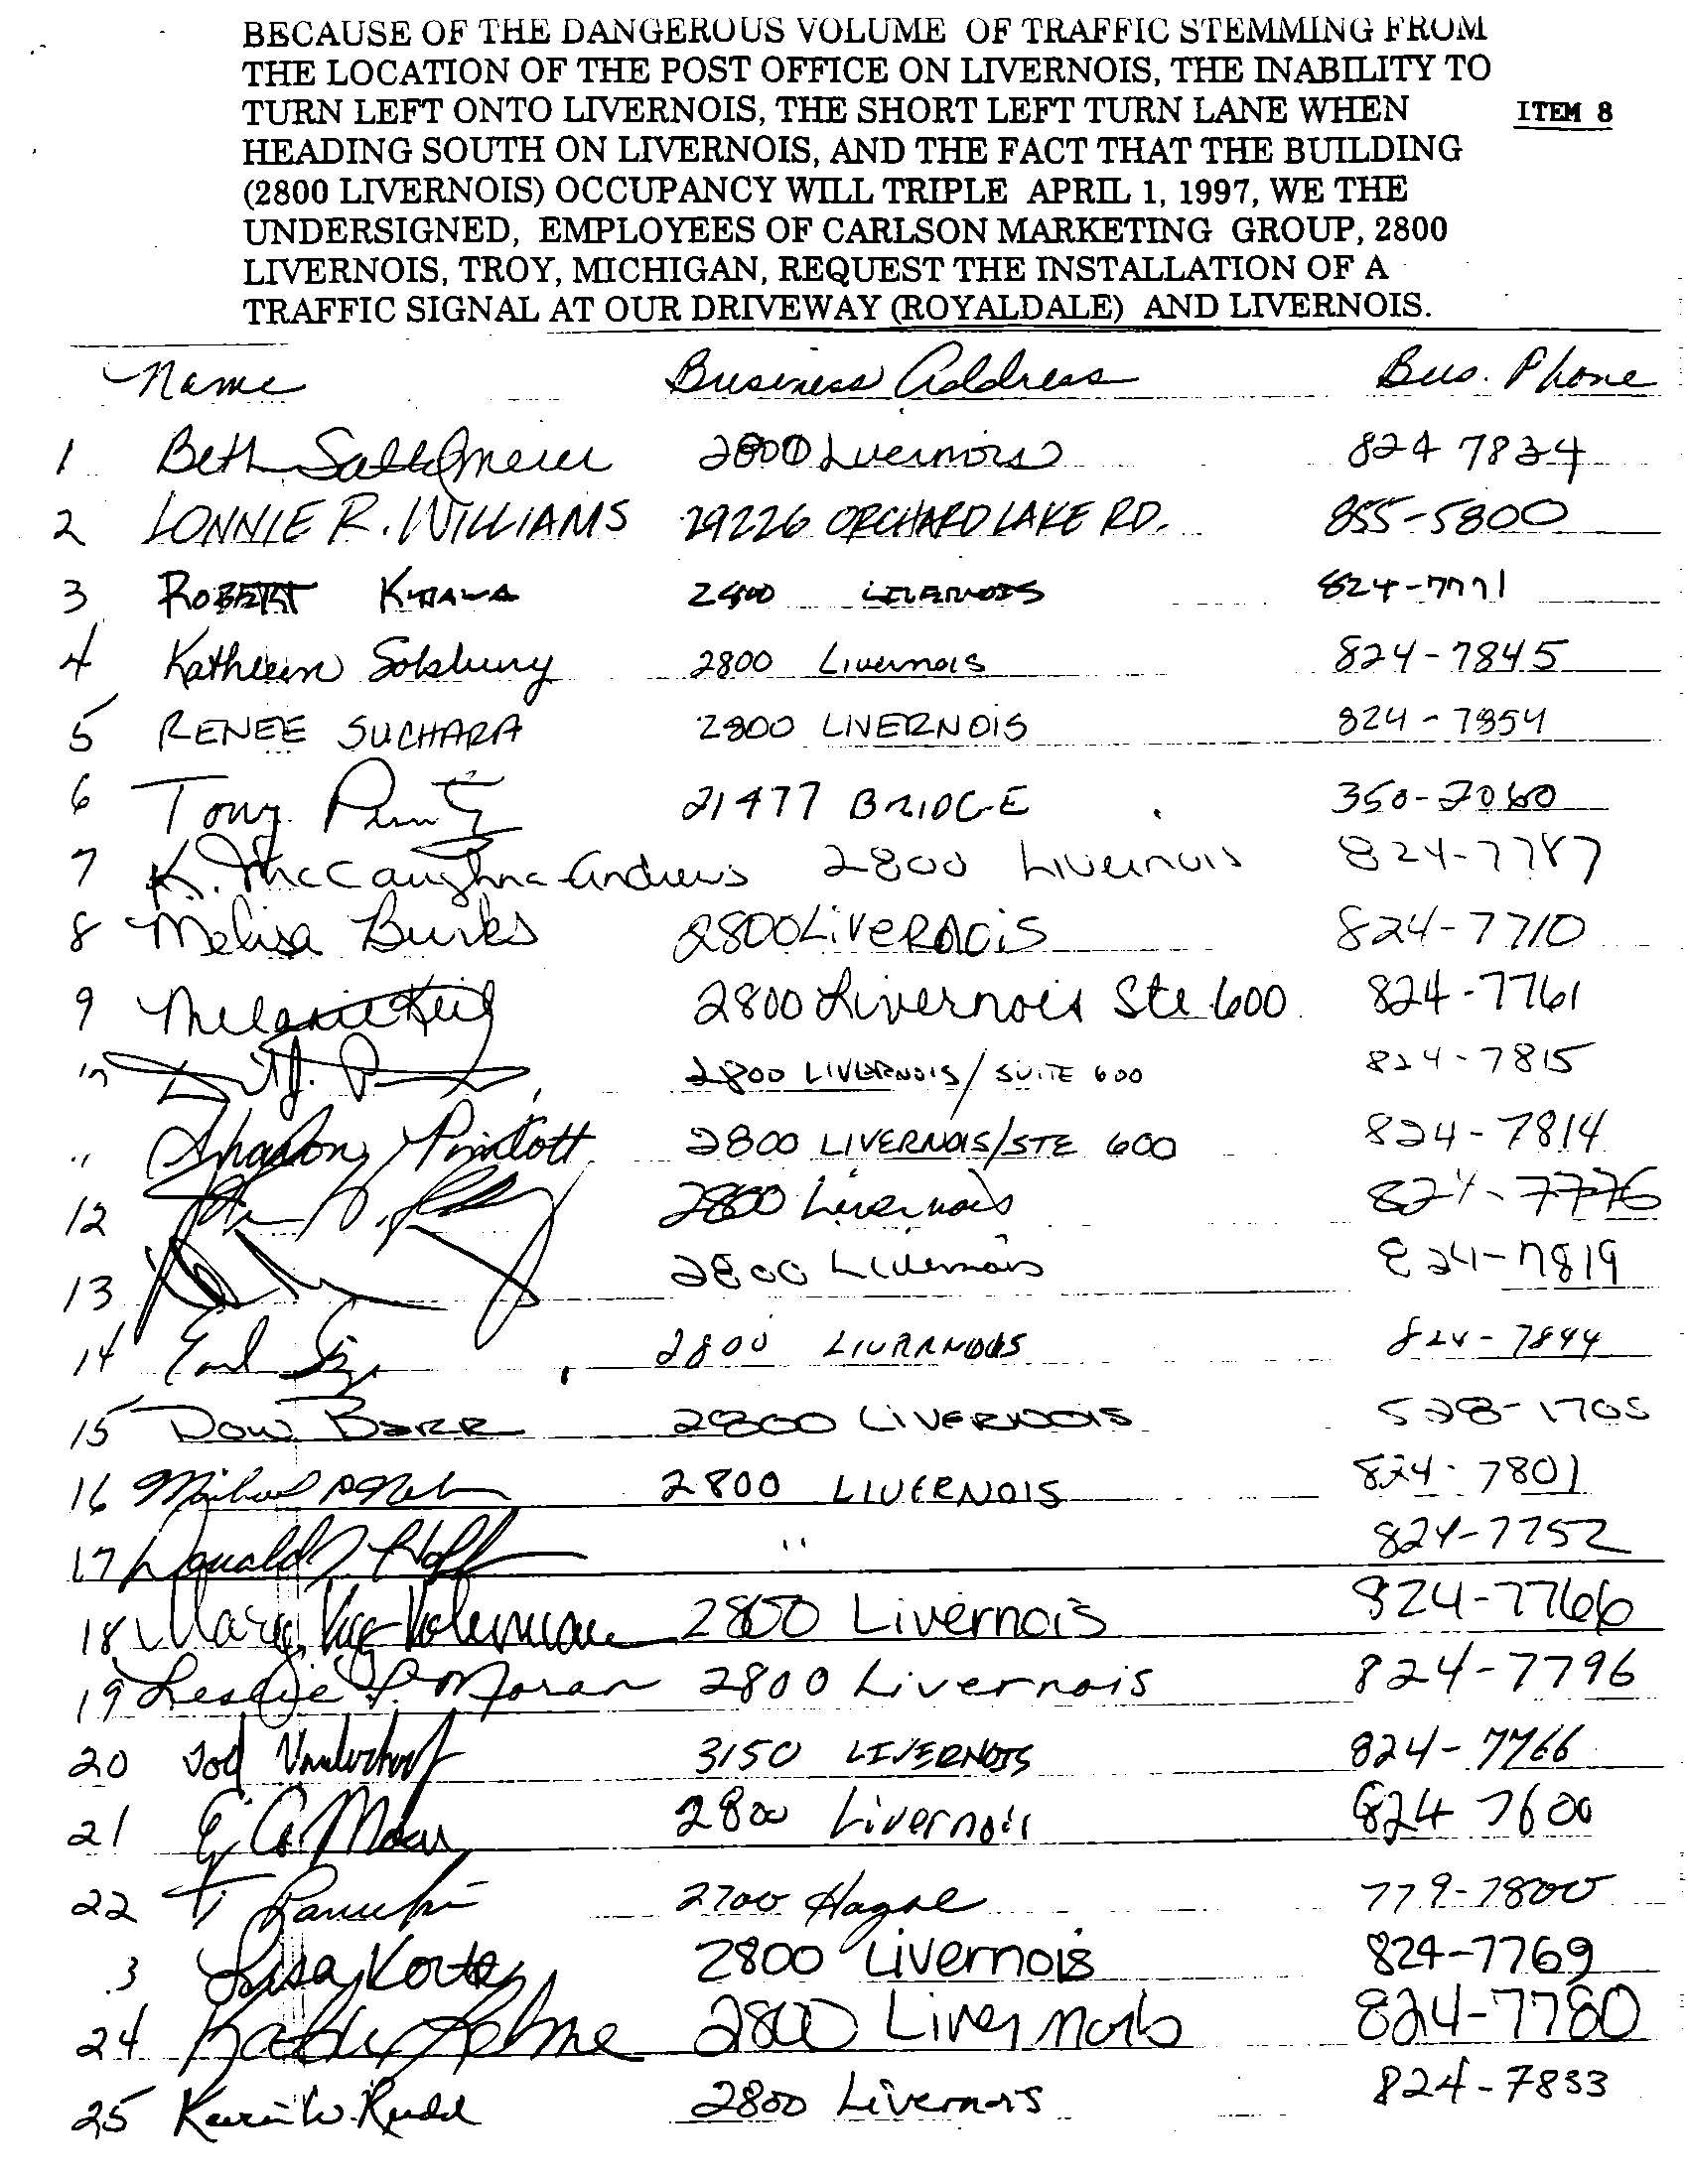 BECAUSE OF THE DANGEROUS VOLUME OF TRAFFIC STEMMING FROM
THE LOCATION OF THE POST OFFICE ON LIVERNOIS, THE INABILITY TO
TURN LEFT ONTO LIVERNOIS, THE SHORT LEFT TURN LANE WHEN
ITEM 8
HEADING SOUTH ON LIVERNOIS, AND THE FACT THAT THE BUILDING
(2800 LIVERNOIS) OCCUPANCY WILL TRIPLE APRIL 1, 1997, WE THE
UNDERSIGNED, EMPLOYEES OF CARLSON MARKETING GROUP, 2800
LIVERNOIS, TROY, MICHIGAN, REQUEST THE INSTALLATION OF A
TRAFFIC SIGNAL AT OUR DRIVEWAY (ROYALDALE) AND LIVERNOIS.
Name Business Address Bus. Phone
1 Beth 2800 Livernois 824 7834
2 LONNIE R. WILLIAMS 29226 ORCHARD LAKE RD. 855-5800
3 ROBERT 2800 LIVERNOIS 824-7771
4 Kathleen Solsbury 2800 Livernois 824-7845
5 RENEE SUCHARA 2800 LIVERNOIS 824-7854
6 Tony 21477 BRIDGE 350-2060
7 K. McCaughna-Andrews 2800 Livernois 824-7787
8 Melisa Burks 2800 Livernois 824-7710
9 Melanie Keil 2800 Livernois Ste 600 824-7761
10 2800 LIVERNOIS/SUITE 600 824-7815
11 Sharon Pintott 2800 LIVERNOIS/STE 600 824-7814
12 2800 Livernois 824-7776
13 2800 Livernois 824-7819
14 Earl 2800 LIVRRNOIS 824-7844
15 Dow Barr 2800 LIVERNOIS 528-1705
16 Michael 2800 LIVERNOIS 824-7801
17 Donald J Hoff " 824-7752
18 Mary 2800 Livernois 824-7766
19 Leslie P. Moran 2800 Livernois 824-7796
20 Tod Vanderhoof 3150 LIVERNOIS 824-7766
21 2800 Livernois 824 7600
22 T 2700 779-7800
3 Lisa Korte 2800 Livernois 824-7769
24 Kathy 2800 Livernois 824-7780
25 Kevin W. Rudd 2800 Livernois 824-7833